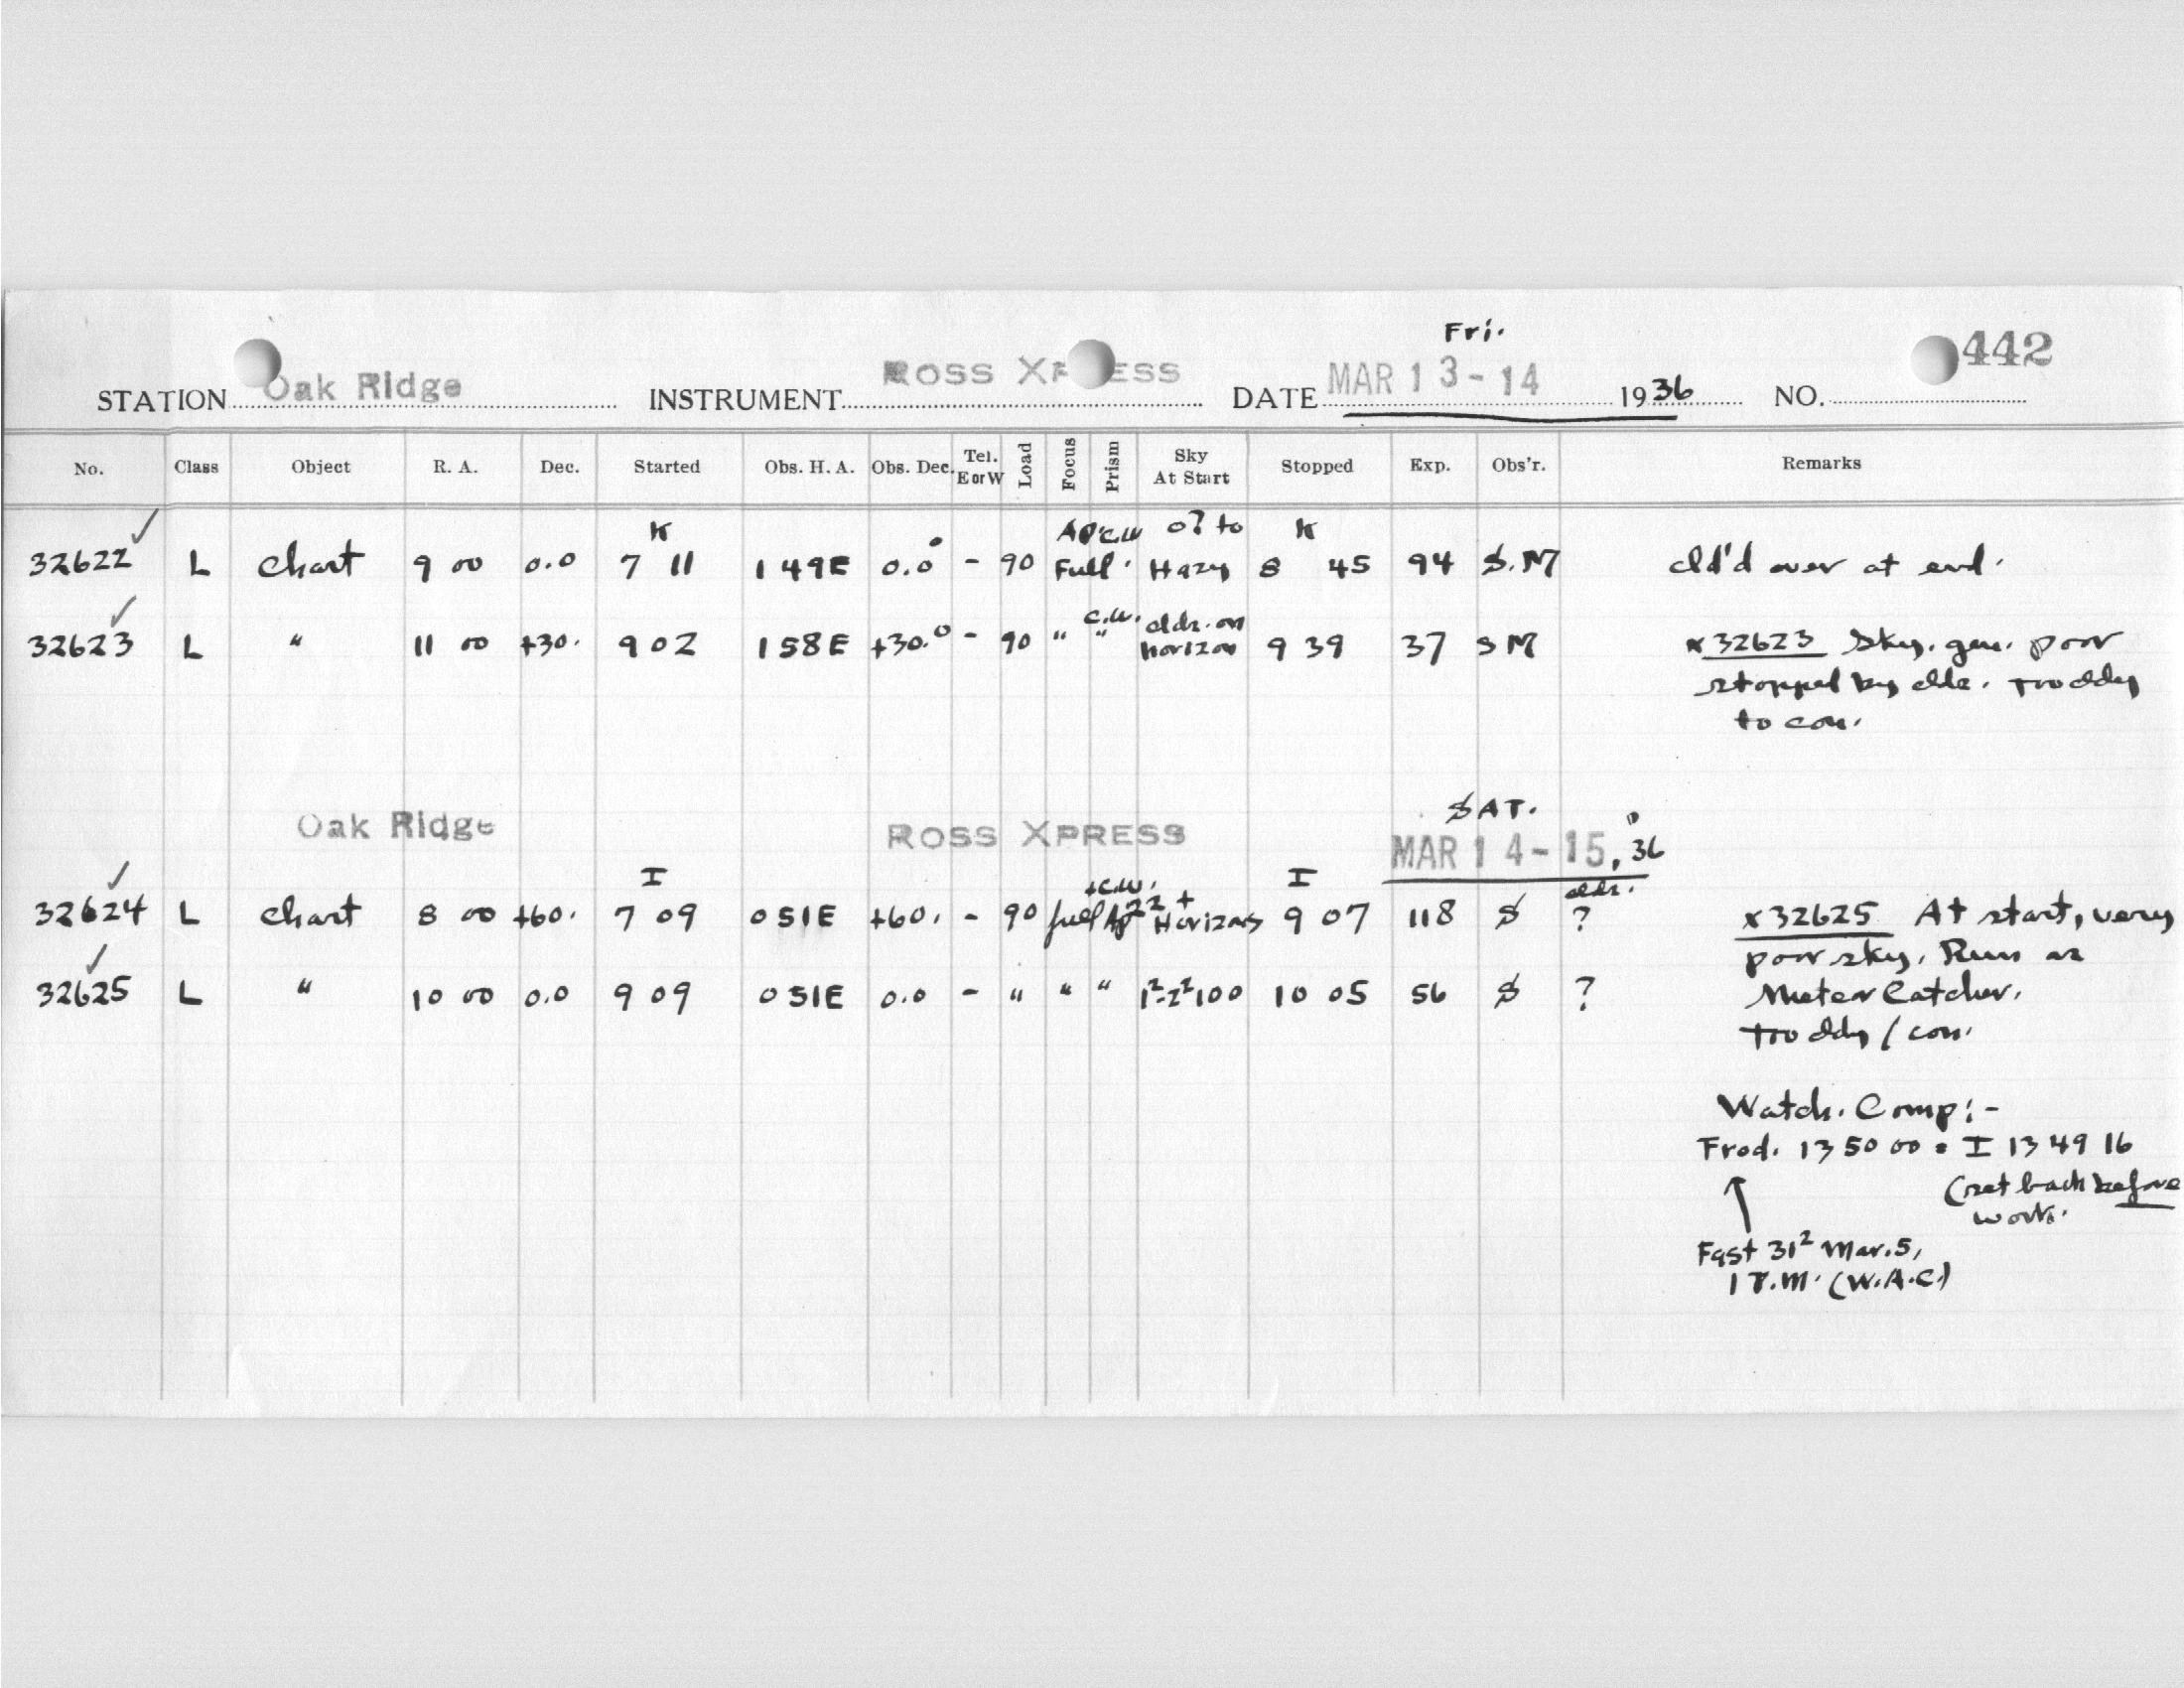 Fri.
STATION Oak Ridge INSTRUMENT ROSS XPRESS DATE MAR 13-14 1936 NO. 442
No. Class Object R. A. Dec. Started Obs. H. A. Obs. Dec. Tel. E or W Load Focus Prism Sky At Start Stopped Exp. Obs'r. Remarks
K Ap. c.w o? to K
32622 L Chart 9 00 0.0 7 11 1 49E 0.0° - 90 Full. Hazy 8 45 94 S.M cld'd over at end.
c.w. clds. on
32623 L " 11 00 +30. 9 02 1 58E +30.0 - 90 " " horizon 9 39 37 SM x 32623 Sky. gen. poor
stopped by clds. Too cldy
to con.
SAT.
Oak Ridge ROSS XPRESS MAR 14-15, 36
I +c.w. I clds.
32624 L Chart 8 00 +60. 7 09 0 51E +60. - 90 full Ap 2 2 + Horizons 9 07 118 S ? x 32625 At start, very
poor sky. Run as
32625 L " 10 00 0.0 9 09 0 51E 0.0 - " " " 1²-2² 100 10 05 56 S ? Meteor Catcher.
Too cldy / con.
Watch. Comp:-
Frod. 13 50 00 = I 13 49 16
(set back before
work.
Fast 31² Mar. 5,
1 P.M. (W.A.C.)